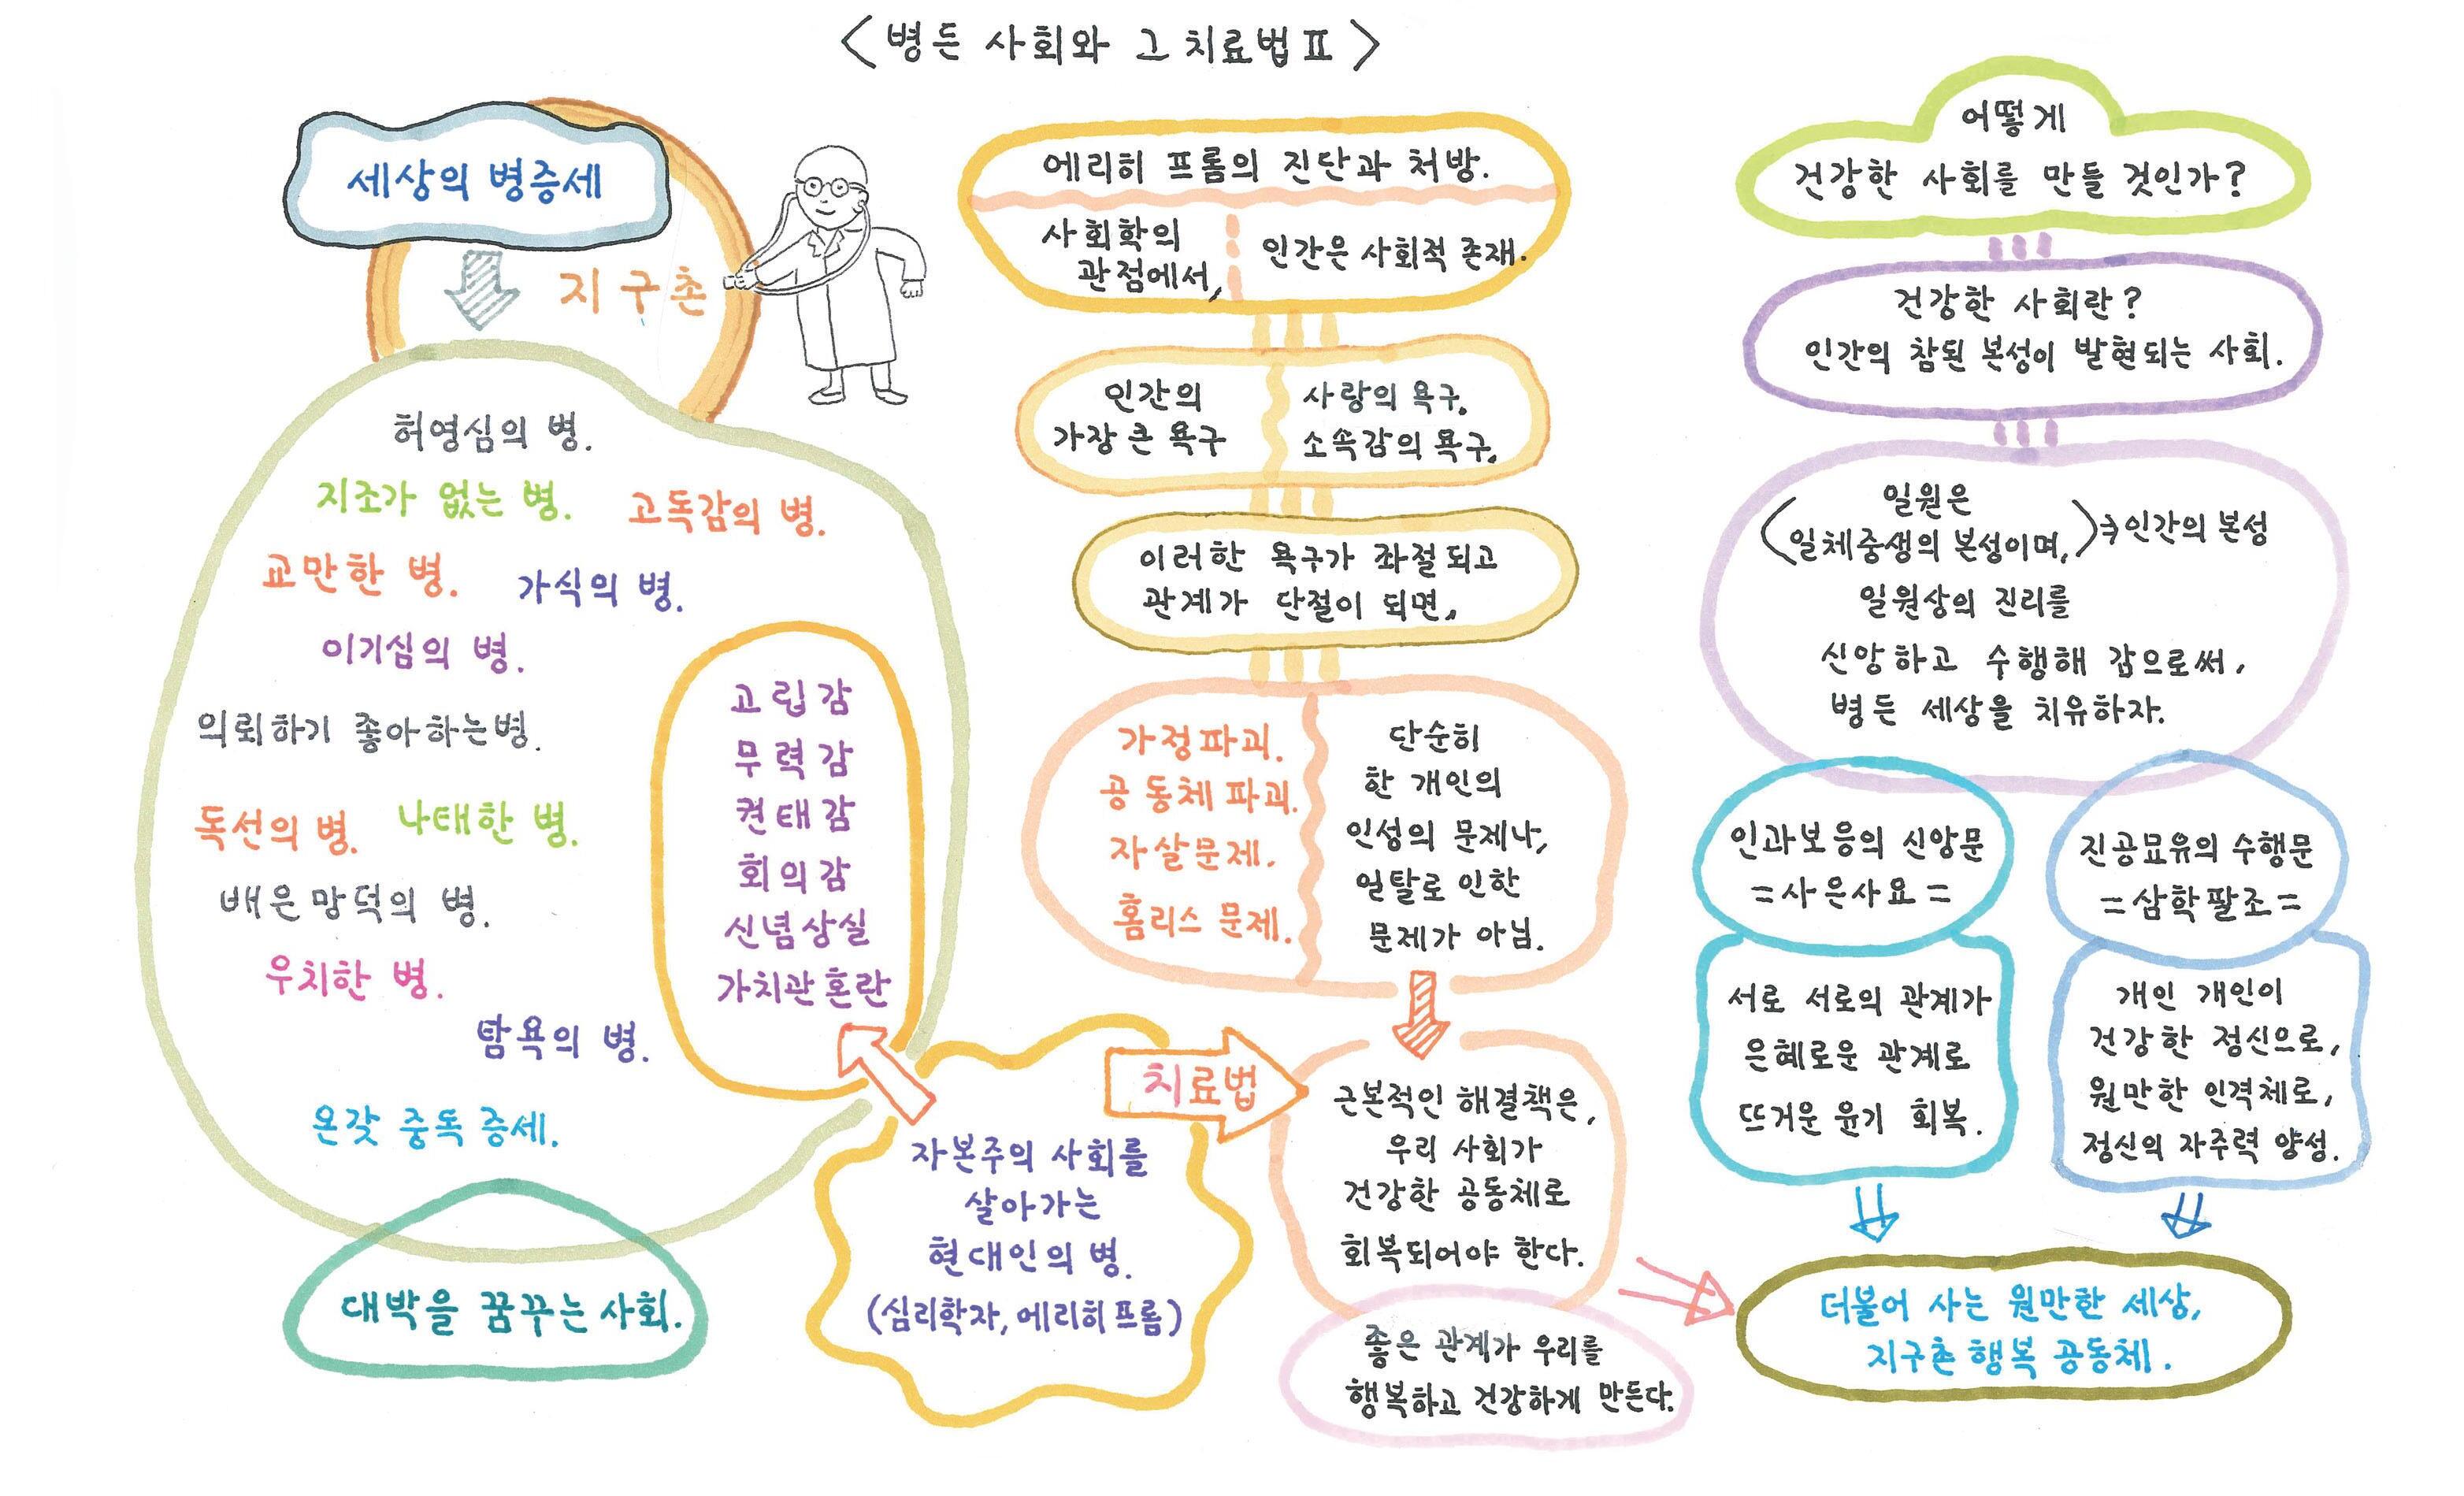 <병든 사회와 그 치료법 Ⅱ>
세상의 병증세
지구촌
허영심의 병.
지조가 없는 병.
고독감의 병.
교만한 병.
가식의 병.
이기심의 병.
의뢰하기 좋아하는병.
독선의 병.
나태한 병.
배은망덕의 병.
우치한 병.
탐욕의 병.
온갖 중독 증세.
대박을 꿈꾸는 사회.
고립감
무력감
권태감
회의감
신념상실
가치관혼란
자본주의 사회를
살아가는
현대인의 병.
(심리학자, 에리히프롬)
치료법
에리히 프롬의 진단과 처방.
사회학의
관점에서,
인간은 사회적 존재.
인간의
가장 큰 욕구
사랑의 욕구.
소속감의 욕구.
이러한 욕구가 좌절되고
관계가 단절이 되면,
가정파괴.
공동체파괴.
자살문제.
홈리스 문제.
단순히
한 개인의
인성의 문제나,
일탈로 인한
문제가 아님.
근본적인 해결책은,
우리 사회가
건강한 공동체로
회복되어야 한다.
좋은 관계가 우리를
행복하고 건강하게 만든다.
어떻게
건강한 사회를 만들 것인가?
건강한 사회란?
인간의 참된 본성이 발현되는 사회.
<일원은
일체중생의 본성이며,>⇒인간의 본성
일원상의 진리를
신앙하고 수행해 감으로써,
병든 세상을 치유하자.
인과보응의 신앙문
=사은사요=
서로 서로의 관계가
은혜로운 관계로
뜨거운 윤기 회복.
진공묘유의 수행문
=삼학팔조=
개인 개인이
건강한 정신으로,
원만한 인격체로,
정신의 자주력 양성.
더불어 사는 원만한 세상,
지구촌 행복 공동체.